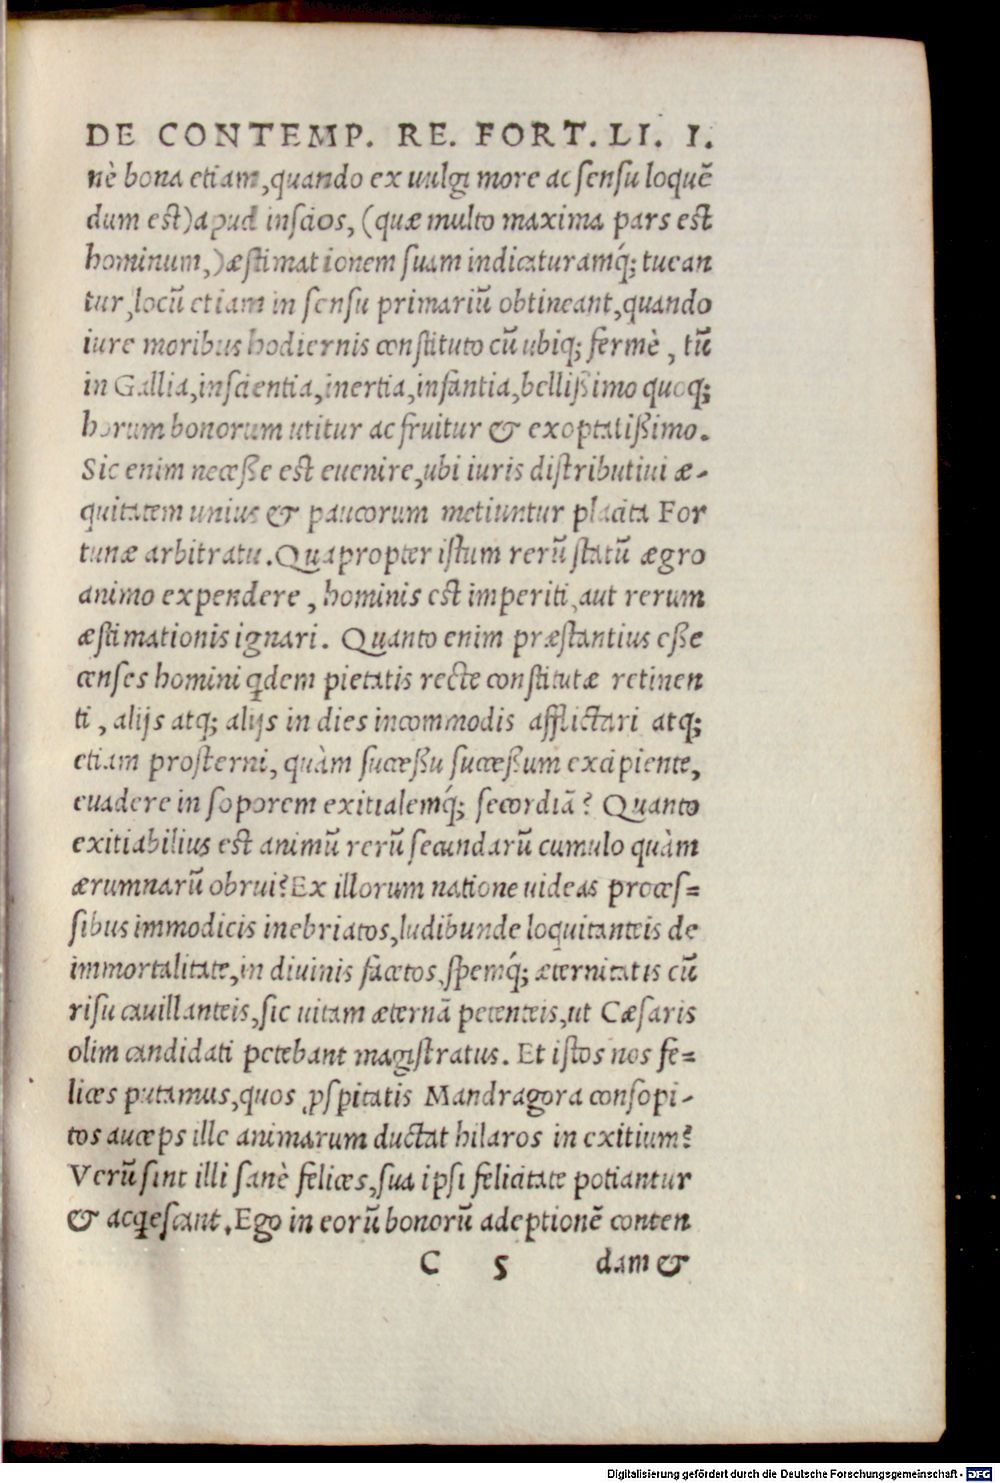 DE CONTEMP. RE. FORT. LI. I.
nè bona etiam, quando ex uulgi more ac sensu loquē
dum est) apud inscios, (quæ multo maxima pars est
hominum,) æstimationem suam indicaturamq́; tuean
tur, locū etiam in sensu primariū obtineant, quando
iure moribus hodiernis constituto cū ubiq; fermè, tū
in Gallia, inscientia, inertia, infantia, bellißimo quoq;
horum bonorum utitur ac fruitur & exoptatißimo.
Sic enim neceße est euenire, ubi iuris distributiui æ-
quitatem unius & paucorum metiuntur placita For
tunæ arbitratu. Quapropter istum rerū statū ægro
animo expendere, hominis est imperiti, aut rerum
æstimationis ignari. Quanto enim præstantius eße
censes homini qdem pietatis recte constitutæ retinen
ti, alijs atq; alijs in dies incommodis afflictari atq;
etiam prosterni, quàm succeßu succeßum excipiente,
euadere in soporem exitialemq́; secordiā? Quanto
exitiabilius est animū rerū secundarū cumulo quàm
ærumnarū obrui? Ex illorum natione uideas proces=
sibus immodicis inebriatos, ludibunde loquitanteis de
immortalitate, in diuinis facetos, spemq́; æternitatis cū
risu cauillanteis, sic uitam æternā petenteis, ut Cæsaris
olim candidati petebant magistratus. Et istos nos fe=
lices putamus, quos ꝓspitatis Mandragora consopi-
tos auceps ille animarum ductat hilaros in exitium?
Verū sint illi sanè felices, sua ipsi felicitate potiantur
& acqescant. Ego in eorū bonorū adeptionē conten
C 5 dam &
Digitalisierung gefördert durch die Deutsche Forschungsgemeinschaft - DFG